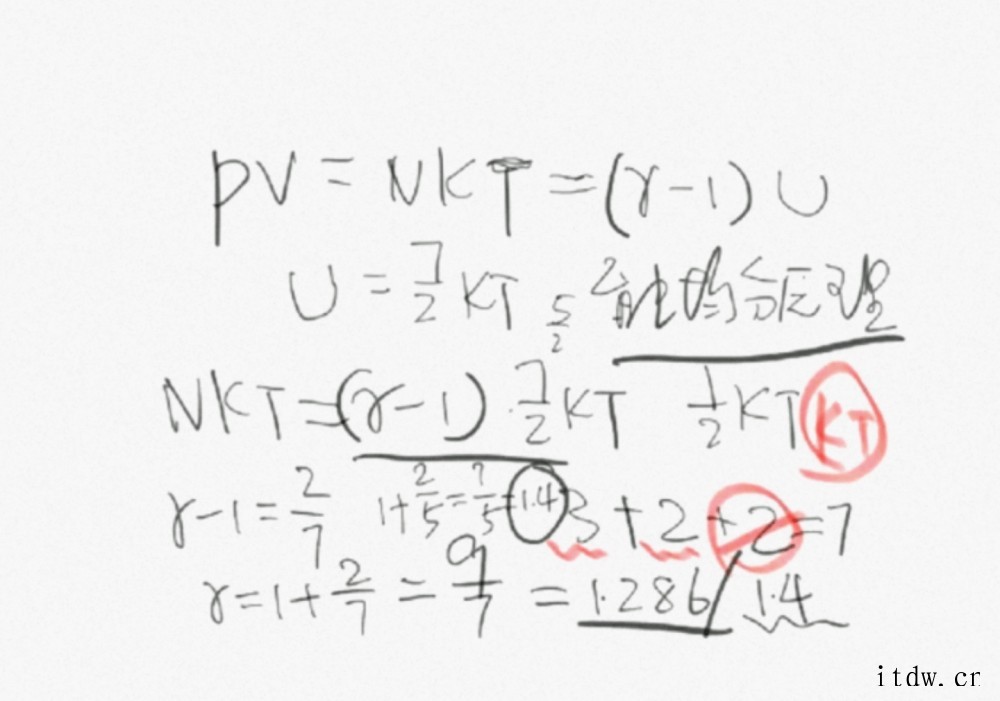 PV = NKT = (γ-1) U
U = 7/2 KT 5/2 能均分定理
NKT = (γ-1) · 7/2 KT 1/2 KT KT
γ-1 = 2/7 1+2/5 = 7/5 = 1.4 3+2+2=7
γ = 1+2/7 = 9/7 = 1.286 / 1.4
itdw.cr